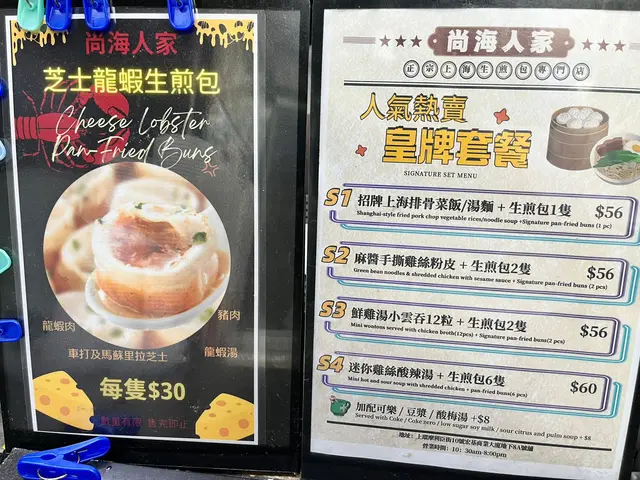 尚海人家
芝士龍蝦生煎包
Cheese Lobster
Pan-Fried Buns
龍蝦肉
豬肉
車打及馬蘇里拉芝士
龍蝦湯
每隻$30
數量有限 售完即止
尚海人家
正宗上海生煎包專門店
人氣熱賣
皇牌套餐
SIGNATURE SET MENU
S1 招牌上海排骨菜飯/湯麵 + 生煎包1隻 $56
Shanghai-style fried pork chop vegetable rices/noodle soup +Signature pan-fried buns (1 pc)
S2 麻醬手撕雞絲粉皮 + 生煎包2隻 $56
Green bean noodles & shredded chicken with sesame sauce + Signature pan-fried buns (2 pcs)
S3 鮮雞湯小雲吞12粒 + 生煎包2隻 $56
Mini wontons served with chicken broth(12pcs) + Signature pan-fried buns(2 pcs)
S4 迷你雞絲酸辣湯 + 生煎包6隻 $60
Mini hot and sour soup with shredded chicken + pan-fried buns(6 pcs)
加配可樂 / 豆漿 / 酸梅湯 +$8
Served with Coke / Coke zero / low sugar soy milk / sour citrus and pulm soup + $8
地址：上環摩利臣街10號宏基商業大廈地下8A號舖
營業時間：10：30am-8:00pm